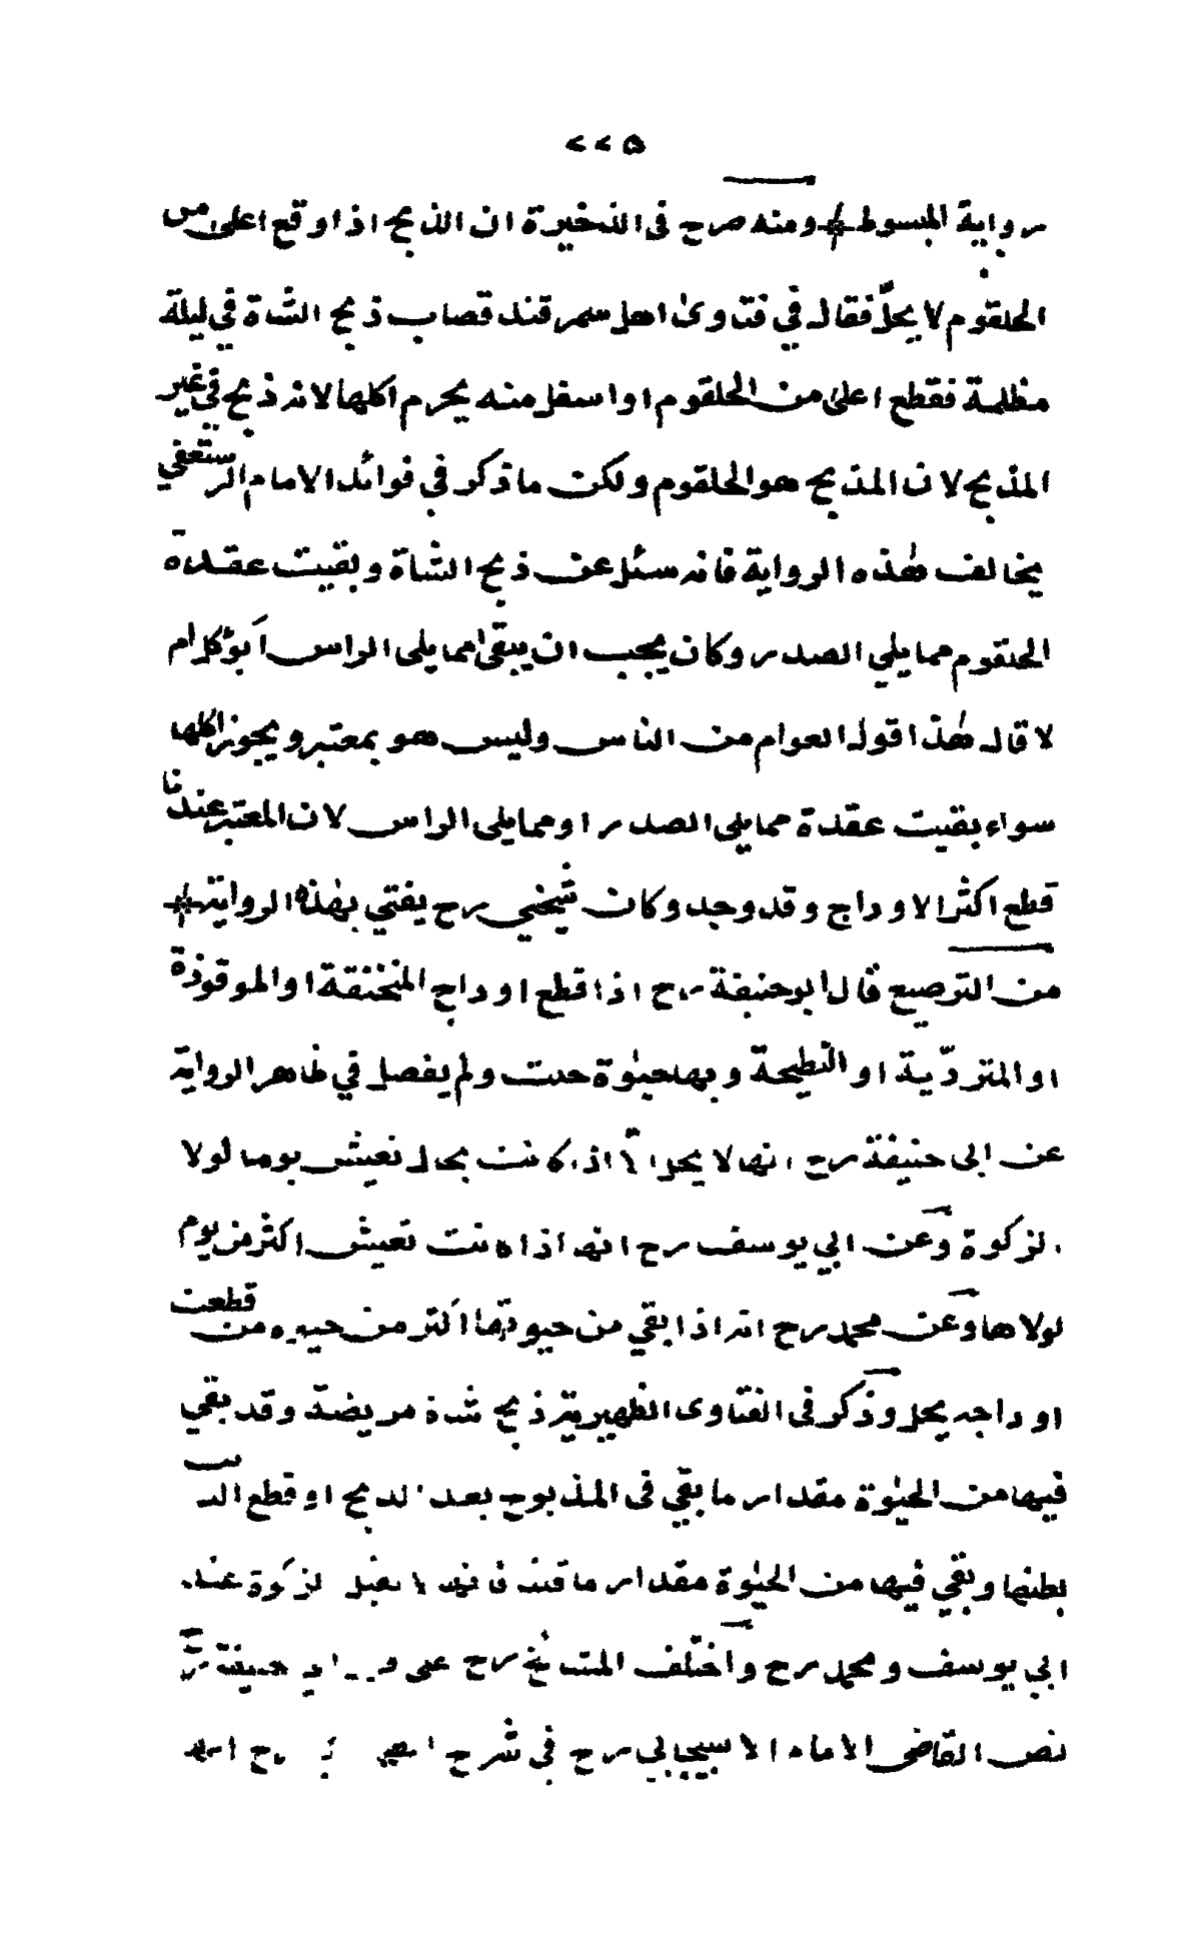 ٧٧٥
رواية المبسوط # ومنه صرح فى الذخيرة ان الذبح اذا وقع اعلى من
الحلقوم لا يحلّ فقال في فتاوىٰ اهل سمرقند قصاب ذبح الشاة في ليلة
مظلمة فقطع اعلىٰ من الحلقوم او اسفل منه يحرم اكلها لانه ذبح في غير
المذبح لان المذبح هو الحلقوم ولكن ما ذكر في فوائد الامام الرستغفني
يخالف هٰذه الرواية فانه سئل عن ذبح الشاة وبقيت عقدة
الحلقوم مما يلي الصدر وكان يجب ان يبقىٰ مما يلى الراس أيؤكل ام
لا قال هٰذا قول العوام من الناس وليس هو بمعتبر ويجوز اكلها
سواء بقيت عقدة مما يلي الصدر او مما يلى الراس لان المعتبر عندنا
قطع اكثر الاوداج وقد وجد وكان شيخي رح يفتي بهٰذه الرواية #
من الترصيع قال ابو حنيفة رح اذا قطع اوداج المنخنقة او الموقوذة
او المتردّية او النطيحة وبها حيٰوة حلت ولم يفصل في ظاهر الرواية
عن ابى حنيفة رح انها لا يحل الّا اذا كانت بحال تعيش يوما لولا
الزكوة وعن ابي يوسف رح انها اذا كانت تعيش اكثر من يوم
لولاها وعن محمد رح انه اذا بقي من حيوتها اكثر من حيوة من قطعت
اوداجه يحل وذكر فى الفتاوى الظهيرية ذبح شاة مريضة وقد بقي
فيها من الحيٰوة مقدار ما بقي فى المذبوح بعد الذبح او قطع الذئب
بطنها وبقي فيها من الحيٰوة مقدار ما قلنا فانها لا تقبل الزكوة عند
ابي يوسف ومحمد رح واختلف المشائخ رح على قول ابي حنيفة رح
نص القاضى الامام الاسبيجابي رح في شرح رح انه